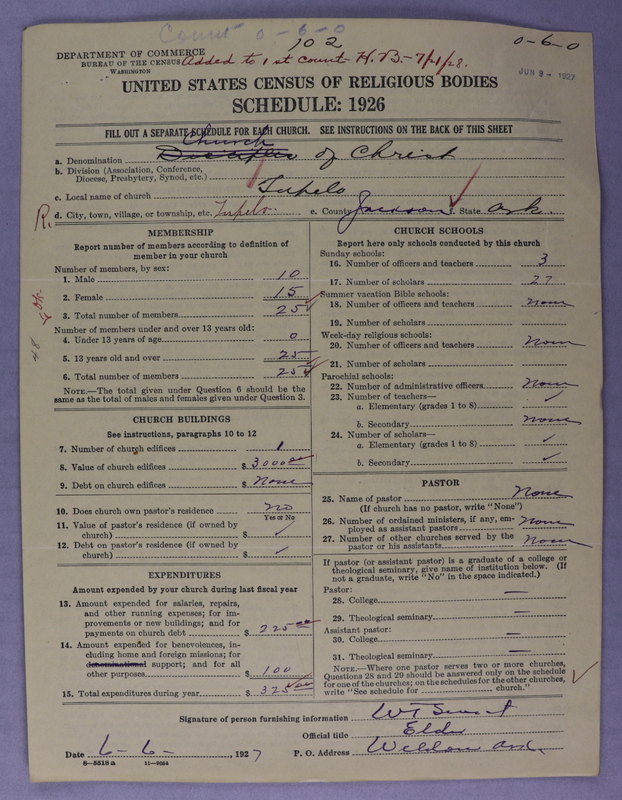 Count 0-6-0
102
0-6-0
DEPARTMENT OF COMMERCE
BUREAU OF THE CENSUS
WASHINGTON
Added to 1st count H.B. 7/21/28.
JUN 9 - 1927
UNITED STATES CENSUS OF RELIGIOUS BODIES
SCHEDULE: 1926
FILL OUT A SEPARATE SCHEDULE FOR EACH CHURCH. SEE INSTRUCTIONS ON THE BACK OF THIS SHEET
Church
a. Denomination Disciples of Christ
b. Division (Association, Conference,
Diocese, Presbytery, Synod, etc.)
c. Local name of church Tupelo
R. d. City, town, village, or township, etc. Tupelo. e. County Jackson f. State Ark.
MEMBERSHIP
Report number of members according to definition of
member in your church
Number of members, by sex:
1. Male 10
2. Female 15
3. Total number of members 25
Number of members under and over 13 years old:
4. Under 13 years of age 0
5. 13 years old and over 25
6. Total number of members 25
NOTE.—The total given under Question 6 should be the
same as the total of males and females given under Question 3.
CHURCH BUILDINGS
See instructions, paragraphs 10 to 12
7. Number of church edifices 1
8. Value of church edifices $ 3000.00
9. Debt on church edifices $ None
10. Does church own pastor's residence no
Yes or No
11. Value of pastor's residence (if owned by
church) $ ✓
12. Debt on pastor's residence (if owned by
church) $ ✓
EXPENDITURES
Amount expended by your church during last fiscal year
13. Amount expended for salaries, repairs,
and other running expenses; for im-
provements or new buildings; and for
payments on church debt $ 225.00
14. Amount expended for benevolences, in-
cluding home and foreign missions; for
denominational support; and for all
other purposes $ 100
15. Total expenditures during year $ 325.00
CHURCH SCHOOLS
Report here only schools conducted by this church
Sunday schools:
16. Number of officers and teachers 3
17. Number of scholars 27
Summer vacation Bible schools:
18. Number of officers and teachers None
19. Number of scholars
Week-day religious schools:
20. Number of officers and teachers None
21. Number of scholars
Parochial schools:
22. Number of administrative officers None
23. Number of teachers—
a. Elementary (grades 1 to 8) ✓
b. Secondary None
24. Number of scholars—
a. Elementary (grades 1 to 8) ✓
b. Secondary ✓
PASTOR
25. Name of pastor None
(If church has no pastor, write "None")
26. Number of ordained ministers, if any, em-
ployed as assistant pastors None
27. Number of other churches served by the
pastor or his assistants None
If pastor (or assistant pastor) is a graduate of a college or
theological seminary, give name of institution below. (If
not a graduate, write "No" in the space indicated.)
Pastor:
28. College —
29. Theological seminary —
Assistant pastor:
30. College —
31. Theological seminary —
NOTE.—Where one pastor serves two or more churches,
Questions 28 and 29 should be answered only on the schedule
for one of the churches; on the schedules for the other churches,
write "See schedule for church."
Signature of person furnishing information W T
Official title Elder
Date 6-6- 1927 P. O. Address Weldon Ark.
8—5518 a 11—9084